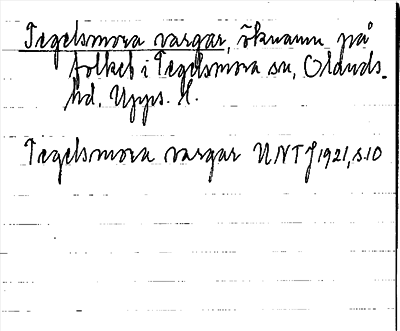 Tegelsmora vargar, öknamn på
folket i Tegelsmora sn, Olands
hd, Upps. l.
Tegelsmora vargar UNTJ 1921, s. 10